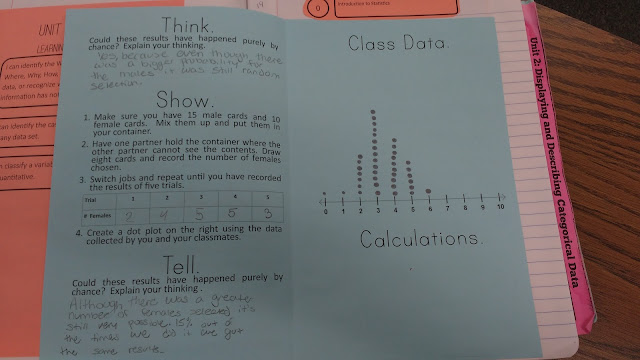 UNIT
LEARNIN
Where, Why, How
data, or recognize
information has not
can identify the cas
any data set.
n classify a variab
uantitative.
Think.
Could these results have happened purely by
chance? Explain your thinking.
Yes, because even though there
was a bigger probability for
the males it was still random
selection.
Show.
1. Make sure you have 15 male cards and 10
female cards. Mix them up and put them in
your container.
2. Have one partner hold the container where the
other partner cannot see the contents. Draw
eight cards and record the number of females
chosen.
3. Switch jobs and repeat until you have recorded
the results of five trials.
Trial 1 2 3 4 5
# Females 2 4 5 5 3
4. Create a dot plot on the right using the data
collected by you and your classmates.
Tell.
Could these results have happened purely by
chance? Explain your thinking.
Although there was a greater
number of females selected it's
still very possible. 15% out of
the times we did it we got
the same results.
Class Data.
0 1 2 3 4 5 6 7 8 9 10
Calculations.
0
Introduction to Statistics
Unit 2: Displaying and Describing Categorical Data